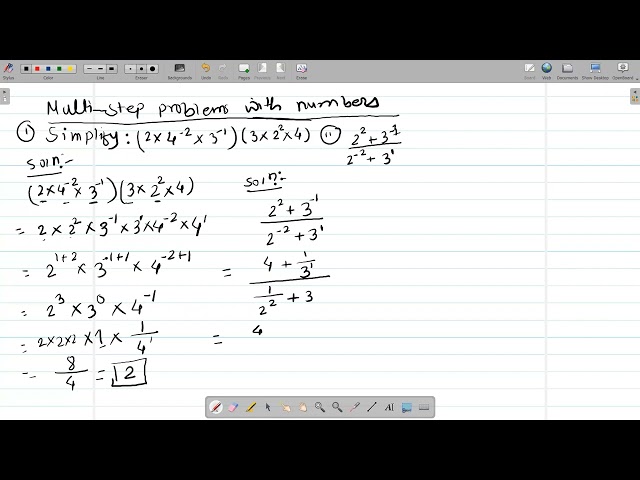 Styles Background Line Eraser Backgrounds Undo Redo Pages Previous Next Erase Web Documents Show Desktop OpenBoard
Multi-step problems with numbers
① Simplify: (2 × 4⁻² × 3⁻¹)(3 × 2² × 4) ⓘⓘ (2² + 3⁻¹)/(2⁻² + 3¹)
Soln:-
(2 × 4⁻² × 3⁻¹)(3 × 2² × 4)
= 2 × 2² × 3⁻¹ × 3¹ × 4⁻² × 4¹
= 2¹⁺² × 3⁻¹⁺¹ × 4⁻²⁺¹
= 2³ × 3⁰ × 4⁻¹
= 2×2×2 × 1 × 1/4¹
= 8/4 = 2
Soln:-
(2² + 3⁻¹)/(2⁻² + 3¹)
= (4 + 1/3¹)/(1/2² + 3)
= 4